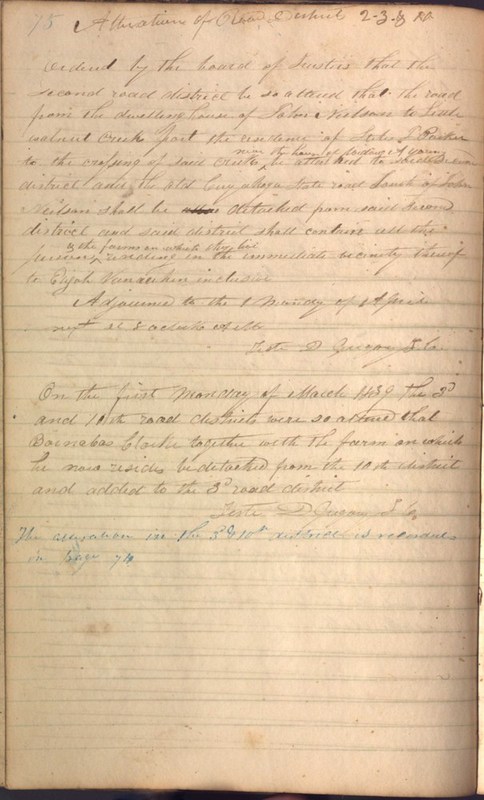 75 Alteration of Road District 2-3 & 10
Ordered by the board of Trustees that the
second road district be so altered that the road
from the dwelling house of John Neilson to
walnut Creek past the residence of John J Parker
near the house of
to the crossing of said creek, be attached to said Second
district and the old Cuyahoga State road South of John
Neilson shall be detached from said Second
district and said district shall contain all the
& the farms on which they live
persons residing in the immediate vicinity thereof
to Elijah inclusive
Adjourned to the 1 Monday of April
next at 8 oclock A M
Teste D T. C.
On the first Monday of March 1839 the 3d
and 10th road districts were so altered that
Barnabas Clarke together with the farm on which
he now resides be detached from the 10th district
and added to the 3d road district
Teste D T. C.
The alteration in the 3d & 10th districts is recorded
in Page 74